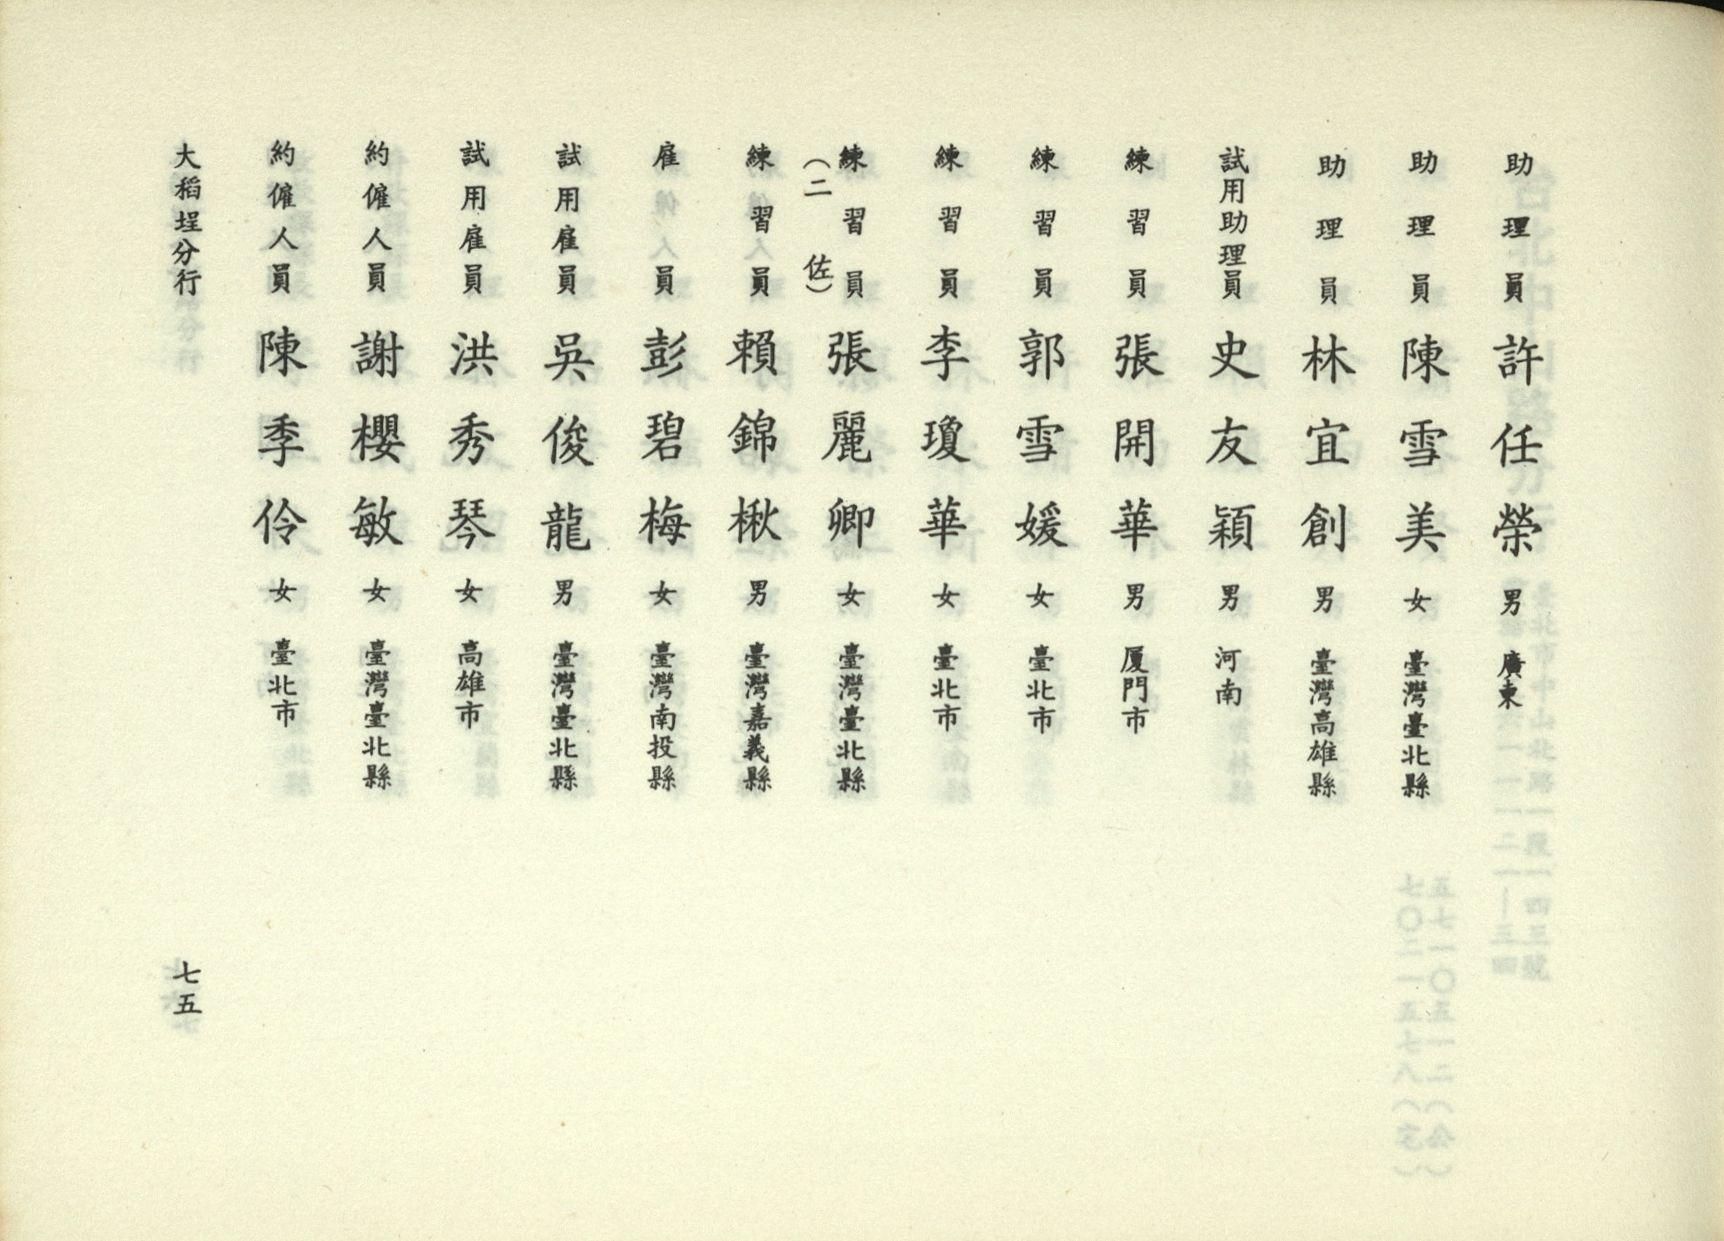 助理員 許任榮 男 廣東
助理員 陳雪美 女 臺灣臺北縣
助理員 林宜創 男 臺灣高雄縣
試用助理員 史友穎 男 河南
練習員 張開華 男 厦門市
練習員 郭雪媛 女 臺北市
練習員 李瓊華 女 臺北市
練習員 張麗卿 女 臺灣臺北縣
（二佐）
練習員 賴錦楸 男 臺灣嘉義縣
雇員 彭碧梅 女 臺灣南投縣
試用雇員 吳俊龍 男 臺灣臺北縣
試用雇員 洪秀琴 女 高雄市
約僱人員 謝櫻敏 女 臺灣臺北縣
約僱人員 陳季伶 女 臺北市
大稻埕分行 七五